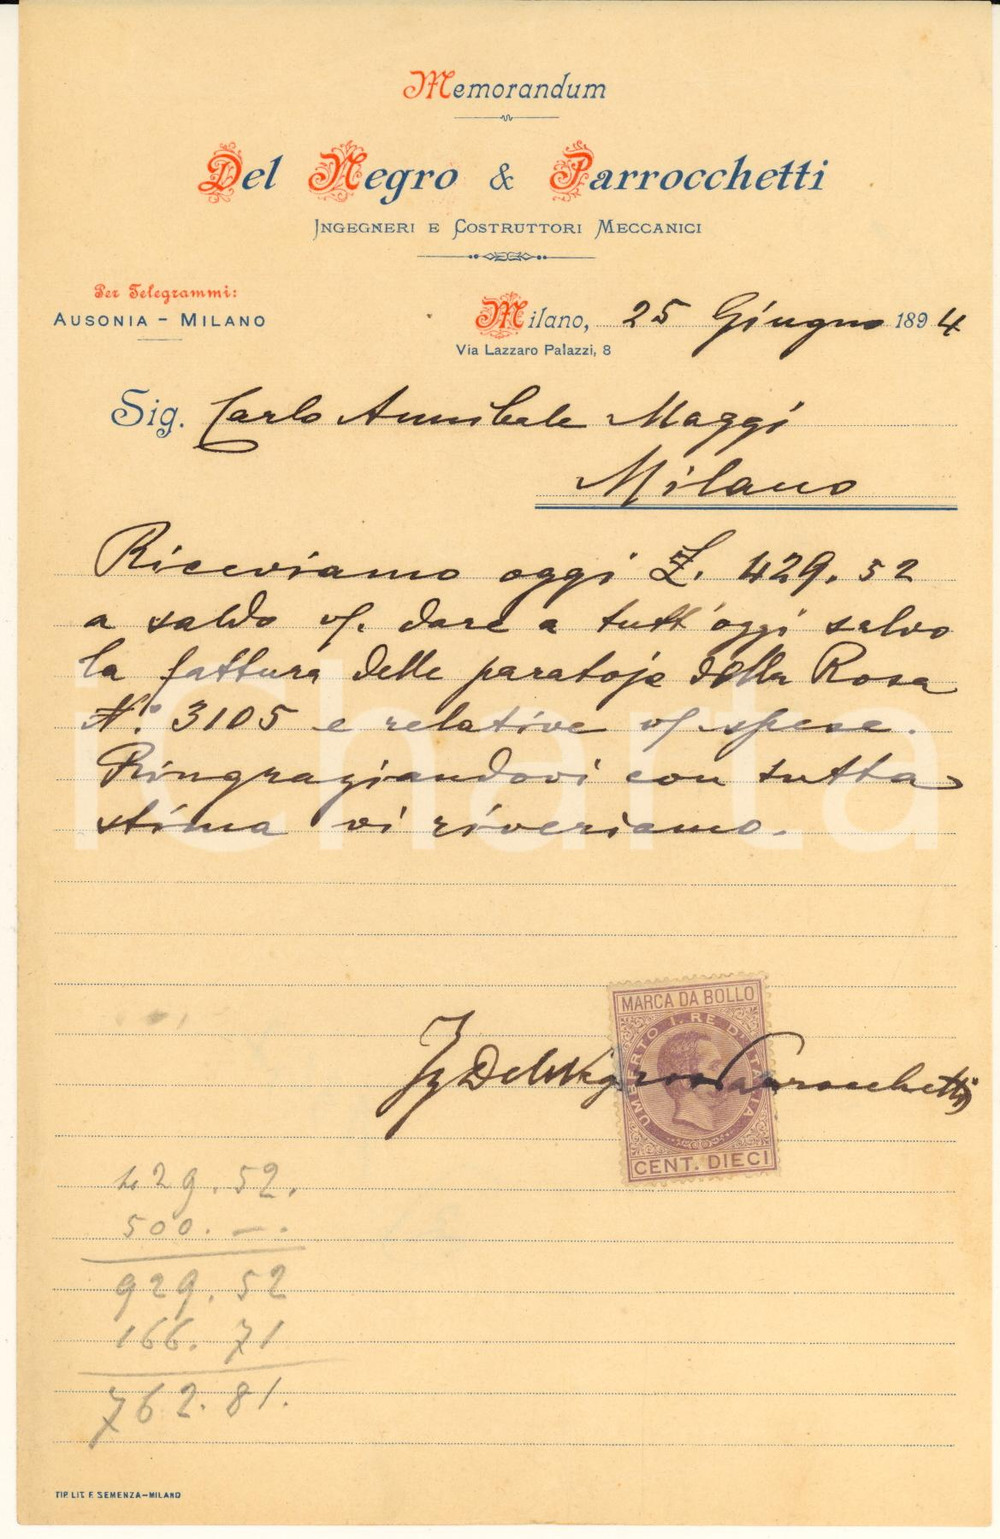 Memorandum
Del Negro & Parrocchetti
Ingegneri e Costruttori Meccanici
Per Telegrammi:
Ausonia - Milano
Milano, 25 Giugno 1894
Via Lazzaro Palazzi, 8
Sig. Carlo Annibale Maggi
Milano
Riceviamo oggi £. 429.52
a saldo v/. dare a tutt'oggi salvo
la fattura delle paratoje della Rosa
N.º 3105 e relative v/ spese.
Ringraziandovi con tutta
stima vi riveriamo.
icharta
MARCA DA BOLLO
UMBERTO I. RE D'ITALIA
CENT. DIECI
Ig Del Negro Parrocchetti
429.52.
500. —.
929.52
166.71
762.81.
TIP. LIT. F. SEMENZA-MILANO